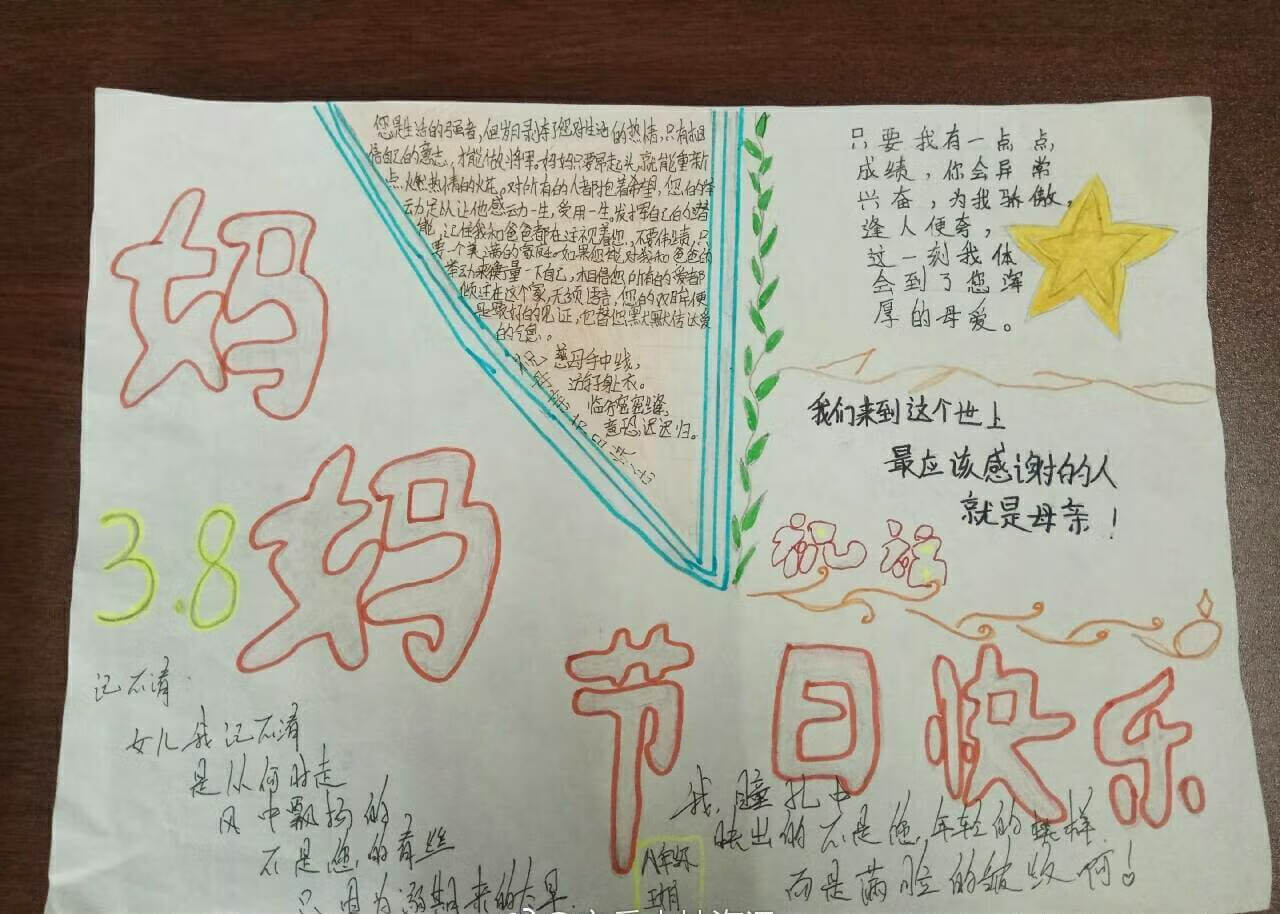 妈
妈
3.8
节日快乐
您是生活的强者,但岁月剥夺了您对生活的热情,只有相
信自己的意志,才能做将军。妈妈只要昂起头,就能重新
点燃热情的火花。对所有的人都包着希望,您的
动足以让他感动一生,受用一生。发挥自己的潜
能,记住我和爸爸都在注视着您,不要伟绩,只
要一个美满的家庭。如果您
举动来衡量一下自己,相信您所有的爱都
倾注在这个家,无须语言,您的衣
是最好的见证,也替您默默传达爱
的气息。
慈母手中线,
游子身上衣。
临行密密缝,
意恐迟迟归。
只要我有一点点
成绩,你会异常
兴奋,为我骄傲,
逢人便夸,
这一刻我体
会到了您浑
厚的母爱。
我们来到这个世上
最应该感谢的人
就是母亲!
祝福
记不清
女儿我记不清
是从何时走
风中飘扬的
不是您的青丝
只因为
我瞳孔中
映出的不是您年轻的模样
而是满脸的皱纹何!